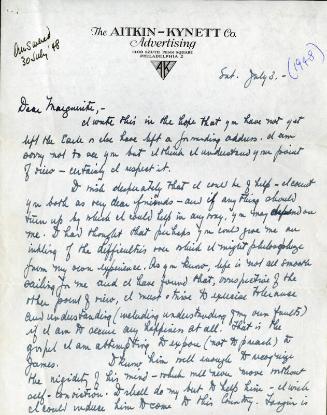 Answered
30 July '48
The AITKIN-KYNETT Co.
Advertising
1400 SOUTH PENN SQUARE
PHILADELPHIA 2
AK
Sat. July 3. -
(1948)
Dear Marguerite, -
I write this in the hope that you have not yet
left the Earle or else have left a forwarding address. I am
sorry not to see you but I think I understand your point
of view - certainly I respect it.
I wish desperately that I could be of help - I count
you both as very dear friends - and if anything should
turn up by which I could help in any way, you may depend on
me. I had thought that perhaps you could give me an
inkling of the difficulties over which I might philosophize
from my own experience. As you know, life is not all smooth
sailing for me and I have found that, irrespective of the
other point of view, I must strive to exercise tolerance
and understanding (including understanding of my own faults)
if I am to secure any happiness at all. That is the
gospel I am attempting to expound (not to preach) to
James. I know him well enough to recognize
the rigidity of his mind - which will never move without
self-conviction. I shall do my best to help him - I wish
I could induce him to come to this Country. Surgin is